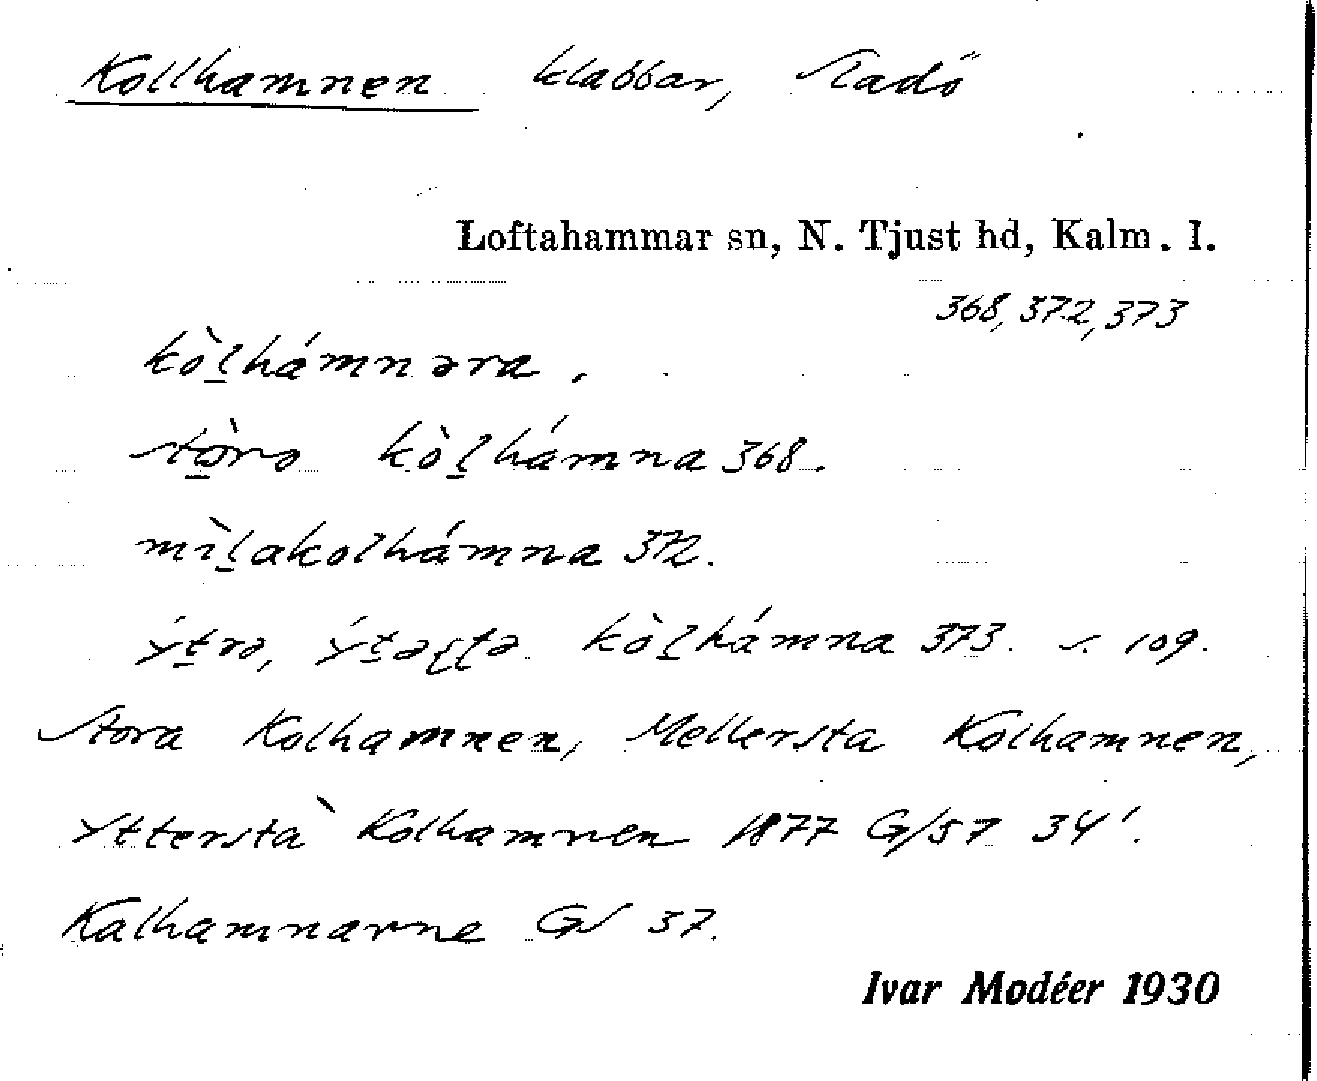 Kollhamnen klabbar, Sladö
Loftahammar sn, N. Tjust hd, Kalm. l.
368, 372, 373
kòl̠hámnəra,
stò̠rə kòl̠hámna 368.
mìl̠akolhámna 372.
ýt̠rə, ýt̠əʂʈə kòl̠hámna 373. s. 109.
Stora Kolhamnen, Mellersta Kolhamnen,
Yttersta Kolhamnen 1877 G/57 34'.
Kalhamnarne GS 37.
Ivar Modéer 1930